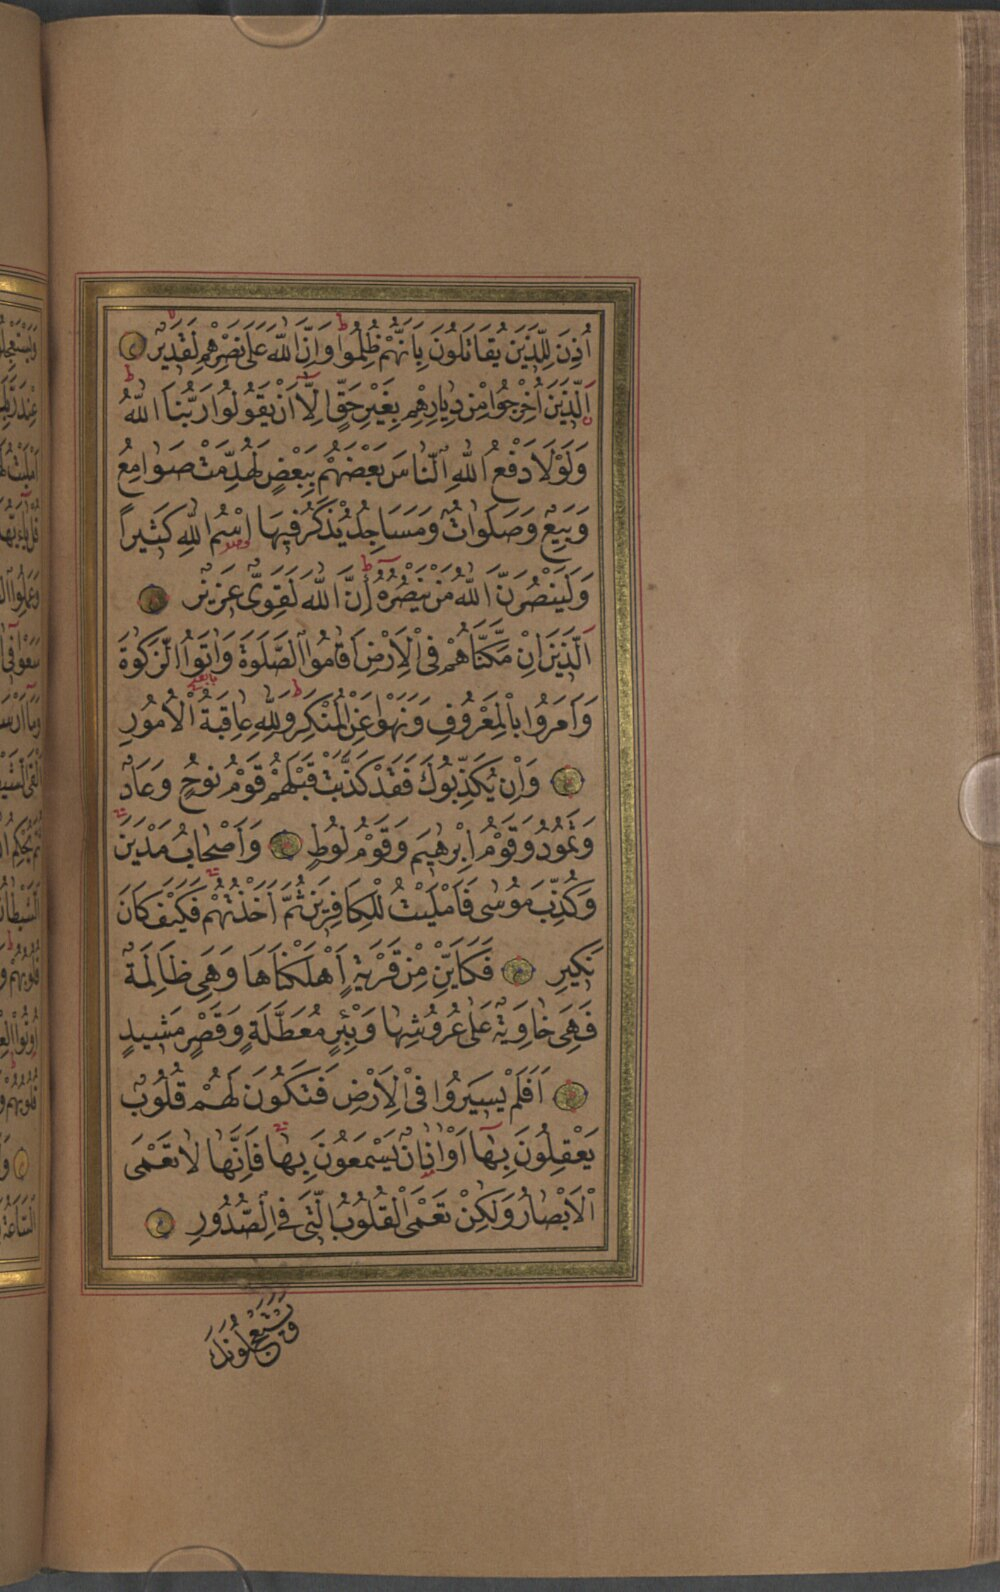 اُذِنَ لِلَّذِينَ يُقَاتَلُونَ بِاَنَّهُمْ ظُلِمُوا وَاِنَّ اللّٰهَ عَلٰى نَصْرِهِمْ لَقَدِيرٌ
اَلَّذِينَ اُخْرِجُوا مِنْ دِيَارِهِمْ بِغَيْرِ حَقٍّ اِلَّا اَنْ يَقُولُوا رَبُّنَا اللّٰهُ
وَلَوْلَا دَفْعُ اللّٰهِ النَّاسَ بَعْضَهُمْ بِبَعْضٍ لَهُدِّمَتْ صَوَامِعُ
وَبِيَعٌ وَصَلَوَاتٌ وَمَسَاجِدُ يُذْكَرُ فِيهَا اسْمُ اللّٰهِ كَثِيرًا
وَلَيَنْصُرَنَّ اللّٰهُ مَنْ يَنْصُرُهُ اِنَّ اللّٰهَ لَقَوِىٌّ عَزِيزٌ
اَلَّذِينَ اِنْ مَكَّنَّاهُمْ فِى الْاَرْضِ اَقَامُوا الصَّلٰوةَ وَاٰتَوُا الزَّكٰوةَ
وَاَمَرُوا بِالْمَعْرُوفِ وَنَهَوْا عَنِ الْمُنْكَرِ وَلِلّٰهِ عَاقِبَةُ الْاُمُورِ
وَاِنْ يُكَذِّبُوكَ فَقَدْ كَذَّبَتْ قَبْلَهُمْ قَوْمُ نُوحٍ وَعَادٌ
وَثَمُودُ وَقَوْمُ اِبْرٰهِيمَ وَقَوْمُ لُوطٍ وَاَصْحَابُ مَدْيَنَ
وَكُذِّبَ مُوسٰى فَاَمْلَيْتُ لِلْكَافِرِينَ ثُمَّ اَخَذْتُهُمْ فَكَيْفَ كَانَ
نَكِيرِ فَكَاَيِّنْ مِنْ قَرْيَةٍ اَهْلَكْنَاهَا وَهِىَ ظَالِمَةٌ
فَهِىَ خَاوِيَةٌ عَلٰى عُرُوشِهَا وَبِئْرٍ مُعَطَّلَةٍ وَقَصْرٍ مَشِيدٍ
اَفَلَمْ يَسِيرُوا فِى الْاَرْضِ فَتَكُونَ لَهُمْ قُلُوبٌ
يَعْقِلُونَ بِهَا اَوْ اٰذَانٌ يَسْمَعُونَ بِهَا فَاِنَّهَا لَا تَعْمَى
الْاَبْصَارُ وَلٰكِنْ تَعْمَى الْقُلُوبُ الَّتِى فِى الصُّدُورِ
وَيَسْتَعْجِلُونَكَ